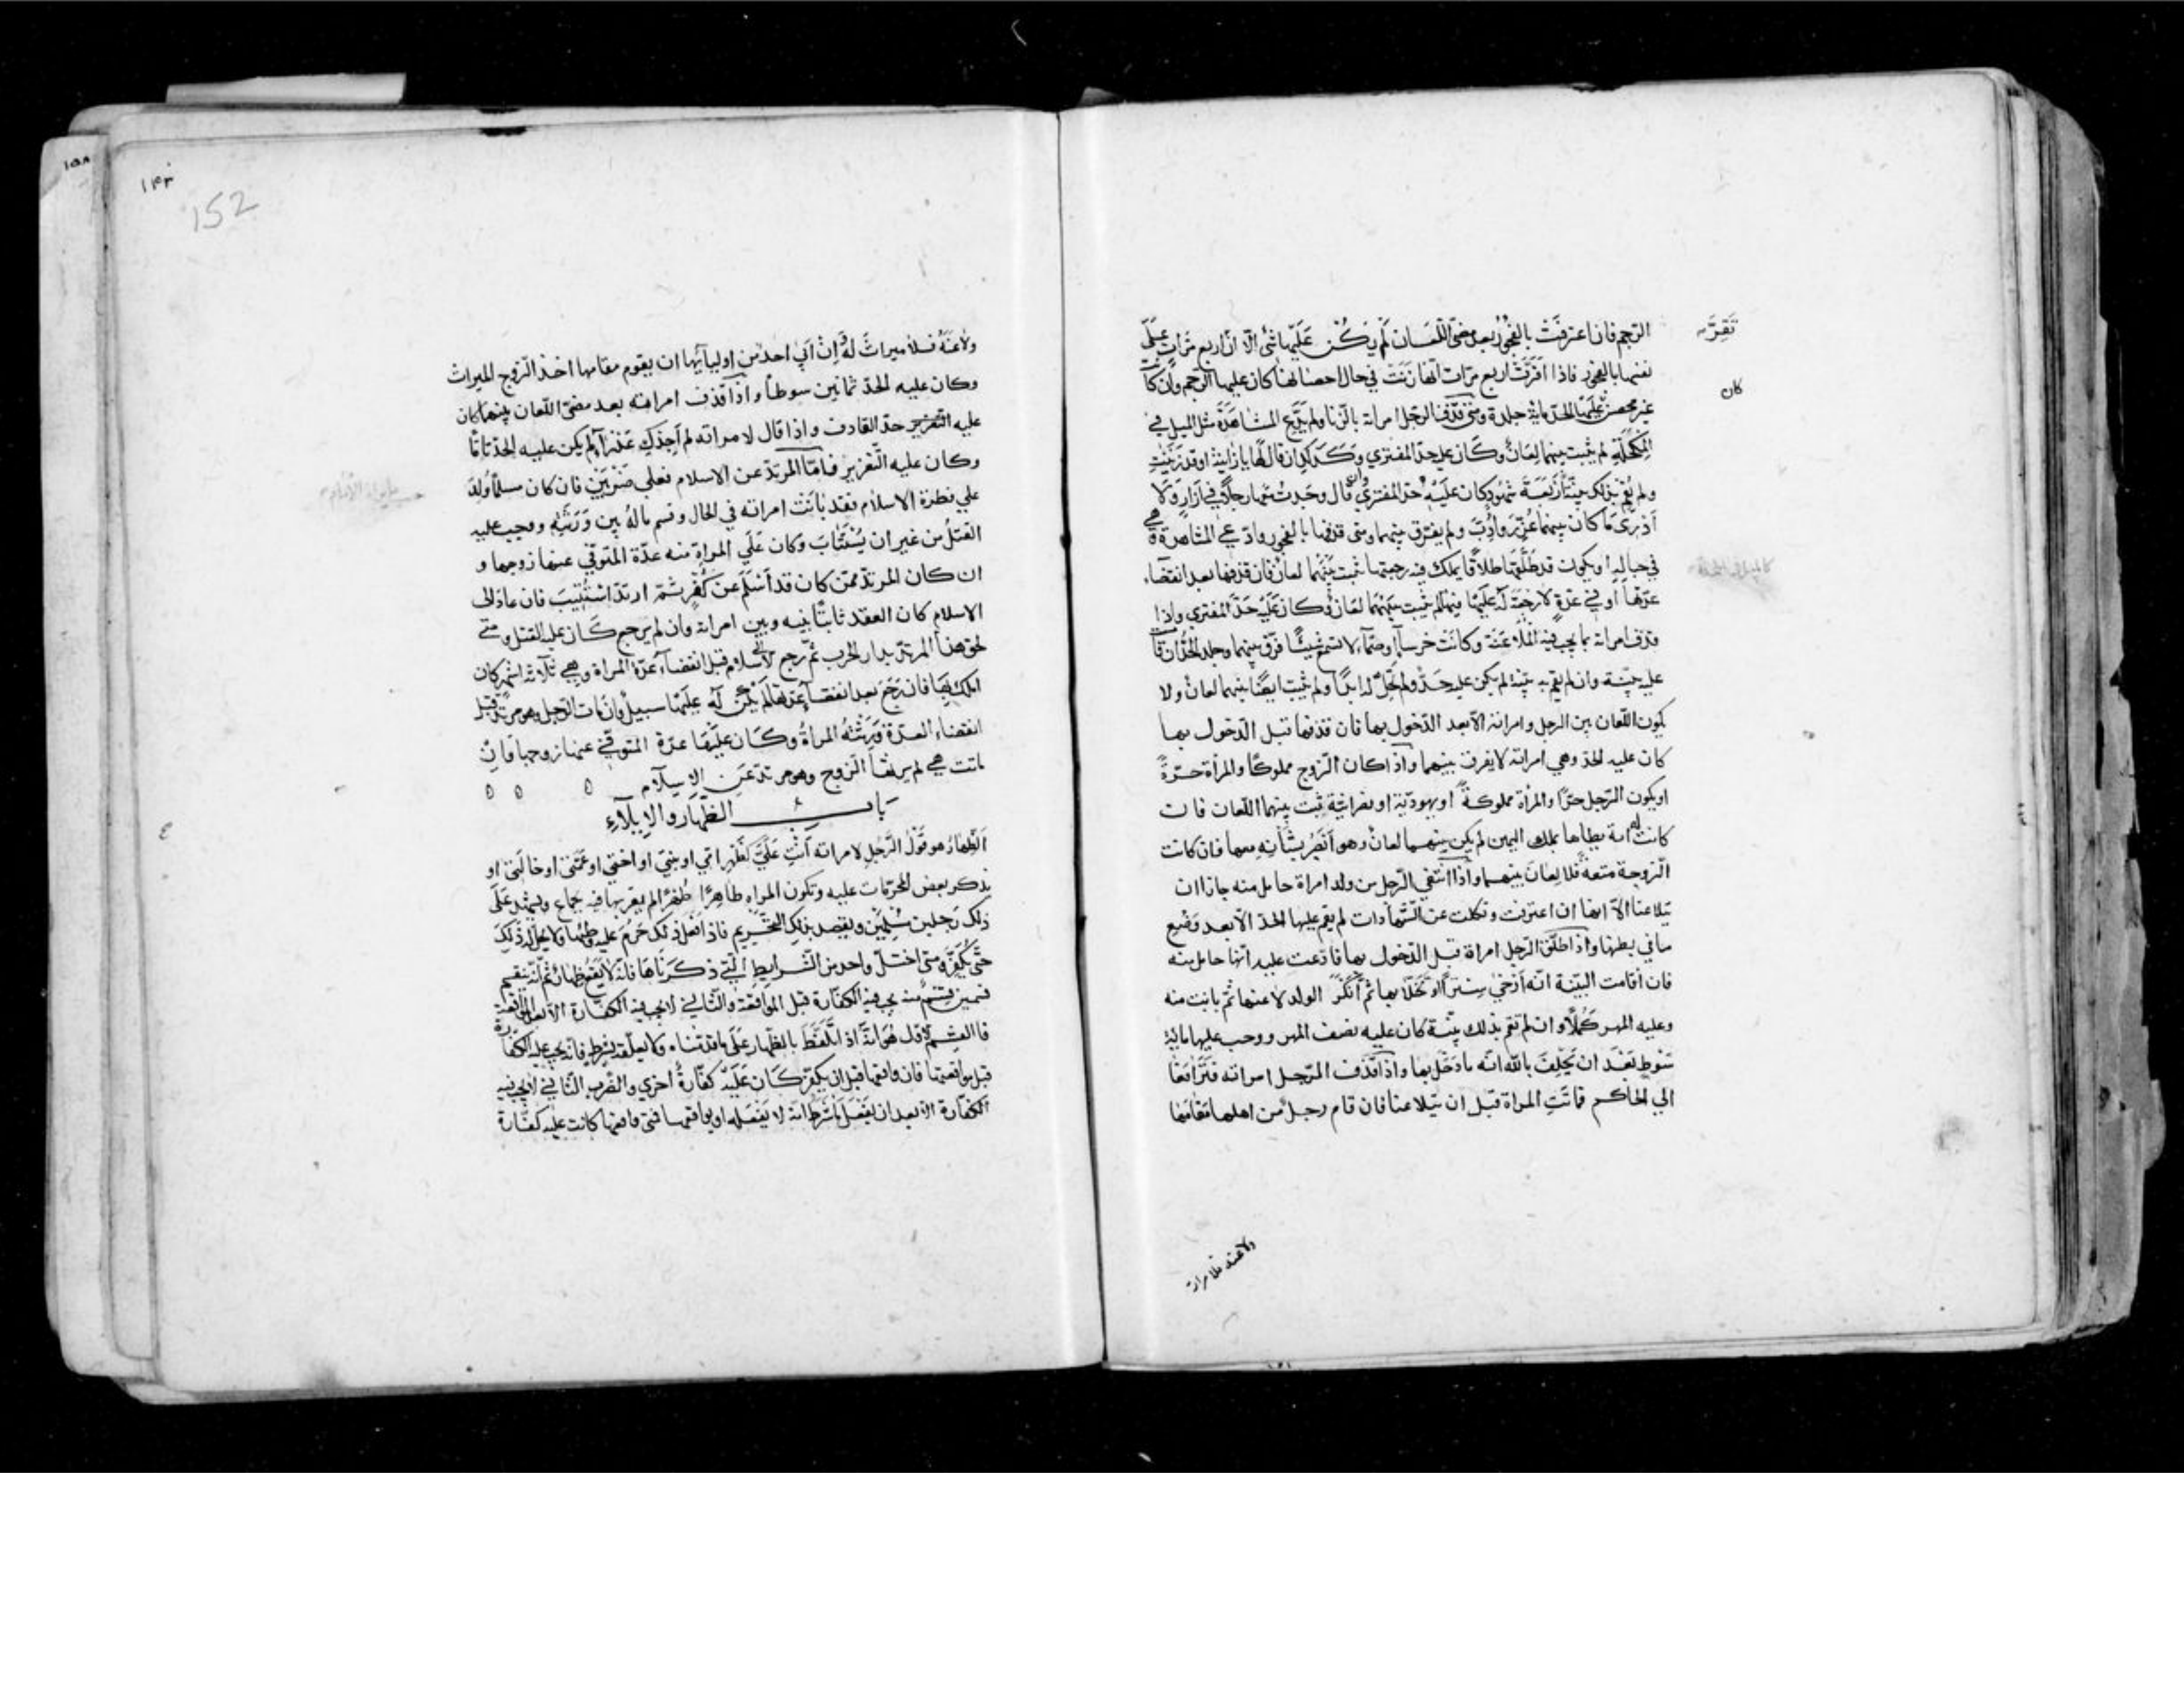 الرّجم فان اعترفت بالفجور بعد مضىّ اللّعان لم يكن عليها شئ الّا ان اربع مرّات على
تقرّ
نفسها بالفجور فاذا اقرّت اربع مرّات انّها زنت في حال احصانها كان عليها الرّجم وان كانت
كان
غير محصن عليها الحدّ ماية جلدة ومتى قذف الرجل امراته بالزنا ولم يدّع المشاهدة مثل الميل في
المكحلة لم يثبت بينهما لعان وكان عليه حدّ المفتري وكذلك ان قال لها يا زانية او قد زنيت
ولم يقم بذلك بيّنة اربعة شهود كان عليه حدّ المفتري وان قال وجدت معها رجلا في ازار ولا
ادري ما كان بينهما عزّر وادّب ولم يفرّق بينهما ومتى قذفها بالفجور وادّعى المشاهدة وهي
في حباله او يكون قد طلّقها طلاقا يملك فيه رجعتها ثبت بينهما لعان فان قذفها بعد انقضاء
عدّتها او في عدّة لا رجعة له عليها فيها لم يثبت بينهما لعان وكان عليه حدّ المفتري واذا
قذف امراته بما يجب فيه الملاعنة وكانت خرساء او صمّاء لا تسمع شيئا فرّق بينهما وجلد الحدّ ان قامت
عليه بيّنة وان لم يقم به بيّنة لم يكن عليه حدّ ولم تحلّ له ابدا ولم يثبت ايضا بينهما لعان ولا
يكون اللّعان بين الرجل وامراته الّا بعد الدّخول بها فان قذفها قبل الدّخول بها
كان عليه الحدّ وهي امراته لا يفرق بينهما واذا كان الزوج مملوكا والمرأة حرّة
او يكون الرّجل حرّا والمرأة مملوكة او يهوديّة او نصرانيّة ثبت بينهما اللّعان فان
كانت له امة يطاها بملك اليمين لم يكن بينهما لعان وهو ابصر بشأنه معها فان كانت
الزوجة متعة فلا لعان بينهما واذا انتفى الرّجل من ولد امراة حامل منه جاز ان
يتلاعنا الّا انها ان اعترفت ونكلت عن الشّهادات لم يقم عليها الحدّ الّا بعد وضع
ما في بطنها واذا طلّق الرّجل امراة قبل الدّخول بها فادّعت عليه انّها حامل منه
فان اقامت البيّنة انّه ارخى سترا او تخلّا بها ثم انكر الولد لاعنها ثمّ بانت منه
وعليه المهر كملا وان لم تقم بذلك بيّنة كان عليه نصف المهر ووجب عليها ماية
سوط بعد ان يحلف بالله انّه ما دخل بها واذا قذف الرّجل امراته فترافعا
الي الحاكم فماتت المراة قبل ان يتلاعنا فان قام رجل من اهلها مقامها
ولاعنه فلا ميراث
١٥٨
١٤٣
152
ولاعنه فلا ميراث له وان ابي احد من اوليائها ان يقوم مقامها اخذ الزوج الميراث
وكان عليه الحدّ ثمانين سوطا واذا قذف امراته بعد مضىّ اللّعان بينهما كان
عليه التعزير حدّ القاذف واذا قال لامراته لم اجدك عذراء لم يكن عليه الحدّ تامّا
وكان عليه التّعزير فامّا المرتدّ عن الاسلام فعلى ضربين فان كان مسلما ولد
على فطرة الاسلام فقد بانت امراته في الحال وقسم ماله بين ورثته ووجب عليه
القتل من غير ان يستتاب وكان على المراة منه عدّة المتوفّى عنها زوجها و
ان كان المرتدّ ممّن كان قد اسلم عن كفر ثمّ ارتدّ استتيب فان عاد الى
الاسلام كان العقد ثابتا بينه وبين امراته وان لم يرجع كان عليه القتل ومتى
لحق هذا المرتدّ بدار الحرب ثمّ رجع الى الاسلام قبل انقضاء عدّة المراة وهي ثلاثة اشهر كان
املك بها فان رجع بعد انقضاء عدّتها لم يكن له عليها سبيل وان مات الرّجل وهو مرتدّ قبل
انقضاء العدّة ورثته المراة وكان عليها عدّة المتوفّى عنها زوجها فان
ماتت هي لم يرثها الزوج وهو مرتدّ عن الاسلام
باب الظّهار والايلاء
الظّهار هو قول الرّجل لامراته انت علىّ كظهر امّي او بنتي او اختي او عمّتي او خالتي او
يذكر بعض المحرّمات عليه وتكون المراة طاهرا طهرا لم يقربها فيه بجماع ويشهد على
ذلك رجلين مسلمين ويقصد بذلك التّحريم فاذا فعل ذلك حرم عليه وطئها ولا يحلّ له ذلك
حتّى يكفّر ومتى اختلّ واحد من الشّرايط الّتي ذكرناها فانّه لا يقع ظهار ثمّ انّه ينقسم
قسمين قسم منه يجب فيه الكفّارة قبل المواقعة والثّاني لا يجب فيه الكفّارة الّا بعد المواقعة
فالقسم الاول هو انّه اذا تلفّظ بالظّهار على ما قدّمناه ولا يعلّقه بشرط فانّه يجب عليه الكفّارة
قبل مواقعتها فان واقعها قبل ان يكفّر كان عليه كفّارة اخرى والضّرب الثّاني لا يجب فيه
الكفّارة الّا بعد ان يفعل ما شرط انّه لا يفعله او يواقعها فمتى واقعها كانت عليه كفّارة